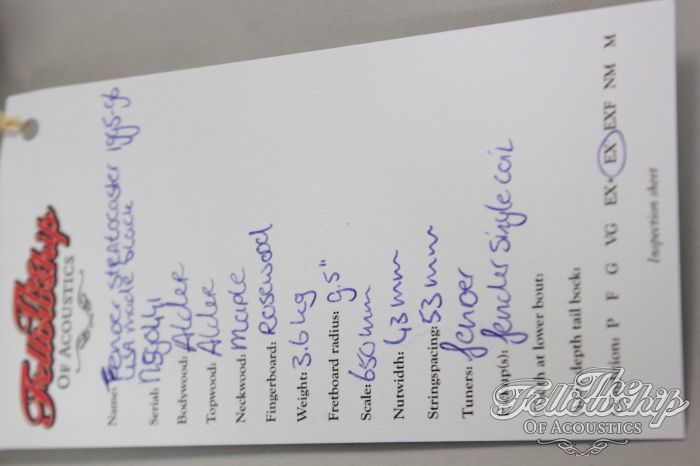 The
Fellowship
OF ACOUSTICS
Name: Fender Stratocaster 1995-96
USA made black
Serial:
Bodywood: Alder
Topwood: Alder
Neckwood: Maple
Fingerboard: Rosewood
Weight: 3.6 kg
Fretboard radius: 9.5"
Scale: 650mm
Nutwidth: 43 mm
Stringspacing: 53 mm
Tuners: fender
up(s): fender single coil
at lower bout:
depth tail bock:
P F G VG EX- EX EXF NM M
Inspection sheet
The
Fellowship
OF ACOUSTICS